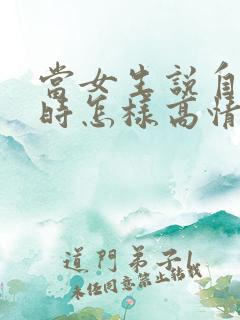 當女生說自
時怎樣高情
道門弟子1
未經同意禁止轉載